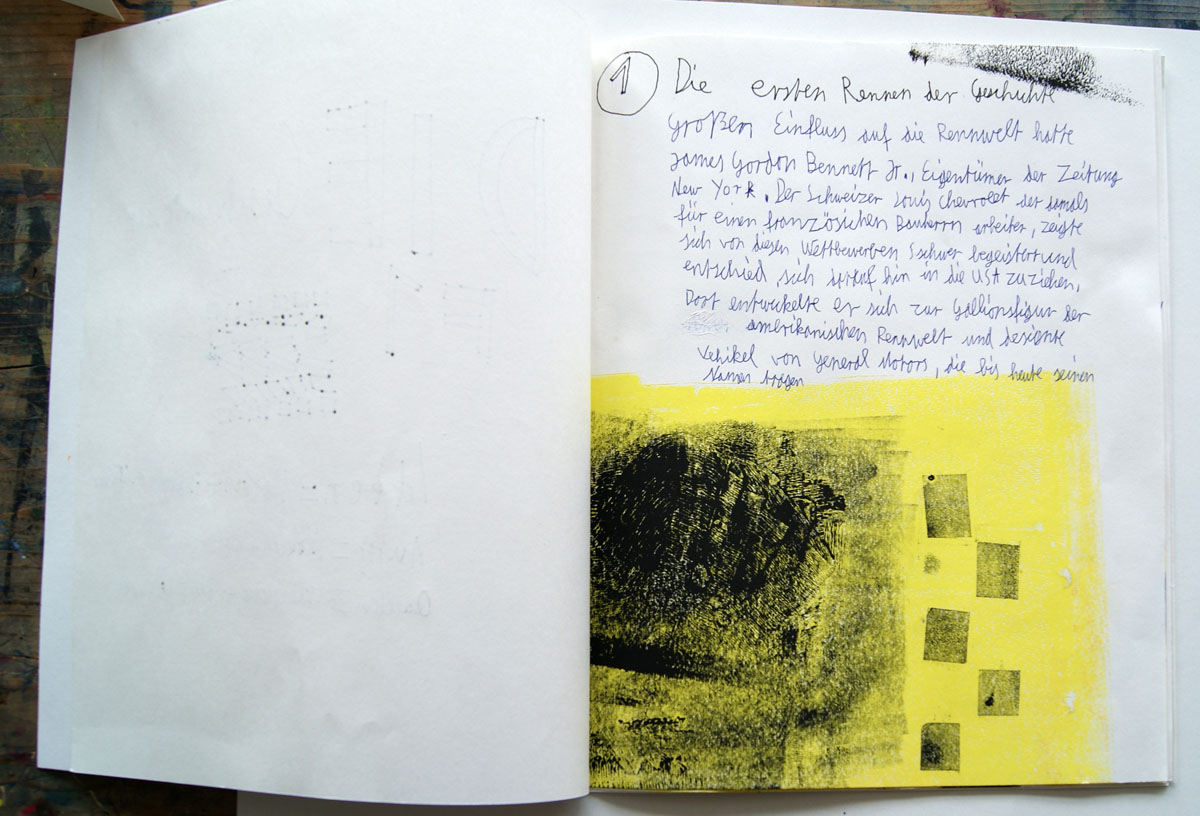 1 Die ersten Rennen der Geschichte
Großen Einfluss auf die Rennwelt hatte
James Gordon Bennett Jr., Eigentümer der Zeitung
New York. Der Schweizer Louis Chevrolet der damals
für einen französichen Bauherrn arbeiter, zeigte
sich von diesen Wettbewerben schwer begeistert und
entschied sich darauf hin in die USA zu ziehen.
Dort entwickelte er sich zur Gallionsfigur der
amerikanischen Rennwelt und designte
Vehikel von General Motors, die bis heute seinen
Namen tragen